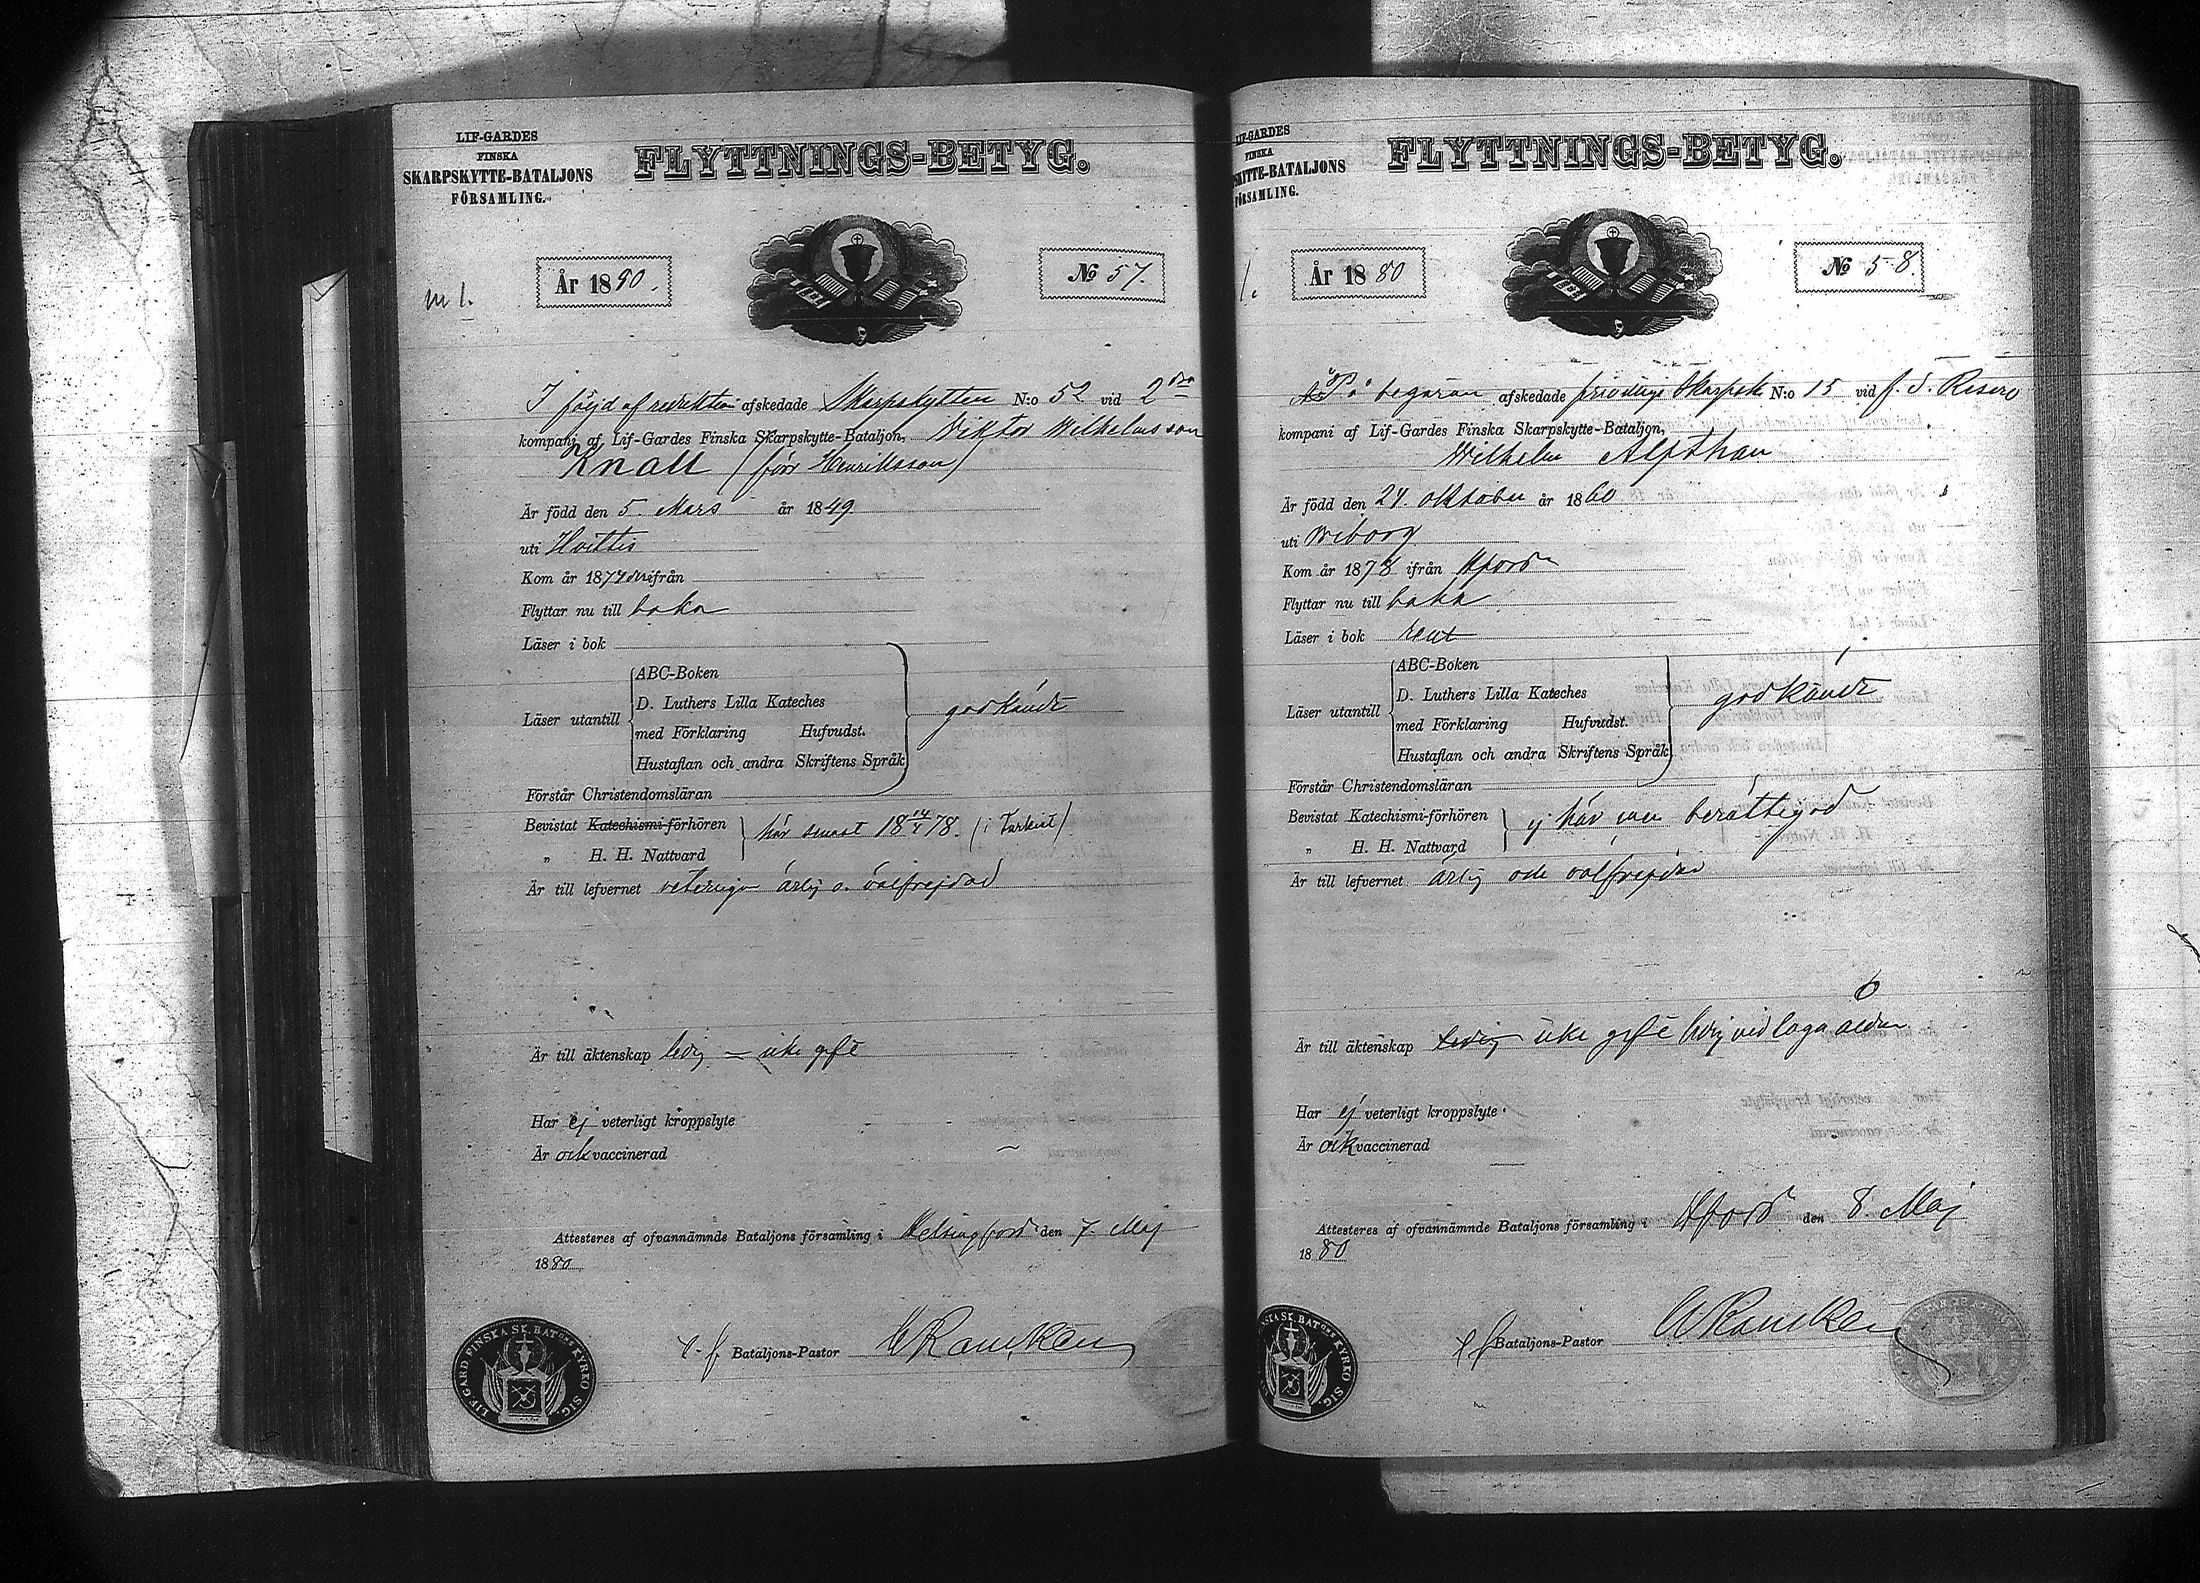 LIF-GARDES
FINSKA
SKARPSKYTTE-BATALJONS
FÖRSAMLING.
FLYTTNINGS-BETYG.
m 1.
År 1880.
No 57.
I följd af reduktion afskedade Skarpskytten N:o 52 vid 2dra
kompani af Lif-Gardes Finska Skarpskytte-Bataljon, Viktor Wilhelmsson
Knall (förr Henriksson)
Är född den 5. Mars år 1849
uti Hvittis
Kom år 1874 derifrån
Flyttar nu till baka
Läser i bok
Läser utantill
ABC-Boken
D. Luthers Lilla Kateches
med Förklaring Hufvudst.
Hustaflan och andra Skriftens Språk
godkändt
Förstår Christendomsläran
Bevistat Katechismi-förhören
„ H. H. Nattvard
här senast 18 14/4 78. (i Turkiet)
Är till lefvernet veterligen ärlig o. välfrejdad
Är till äktenskap ledig – icke gift
Har ej veterligt kroppslyte
Är ock vaccinerad
Attesteres af ofvannämnde Bataljons församling i Helsingfors den 7 Maj
1880
t. f. Bataljons-Pastor
LIF. GARD. FINSKA SK. BATONS KYRKO SIG.
LIF-GARDES
FINSKA
SKYTTE-BATALJONS
FÖRSAMLING.
FLYTTNINGS-BETYG.
1.
År 1880
No 58.
På begäran afskedade frivillige Skarpsk N:o 15 vid f. d. Reserv
kompani af Lif-Gardes Finska Skarpskytte-Bataljon,
Wilhelm Alfthan
Är född den 24. oktober år 1860
uti Wiborg
Kom år 1878 ifrån Hfors
Flyttar nu till baka
Läser i bok rent
Läser utantill
ABC-Boken
D. Luthers Lilla Kateches
med Förklaring Hufvudst.
Hustaflan och andra Skriftens Språk
godkändt
Förstår Christendomsläran
Bevistat Katechismi-förhören
„ H. H. Nattvard
ej här men berättigad
Är till lefvernet ärlig och välfrejdad
Är till äktenskap ledig icke gift ledig vid laga ålder
Har ej veterligt kroppslyte
Är ock vaccinerad
Attesteres af ofvannämnde Bataljons församling i Hfors den 8. Maj
1880
t f Bataljons-Pastor
FINSKA SK. BATONS KYRKO SIG.